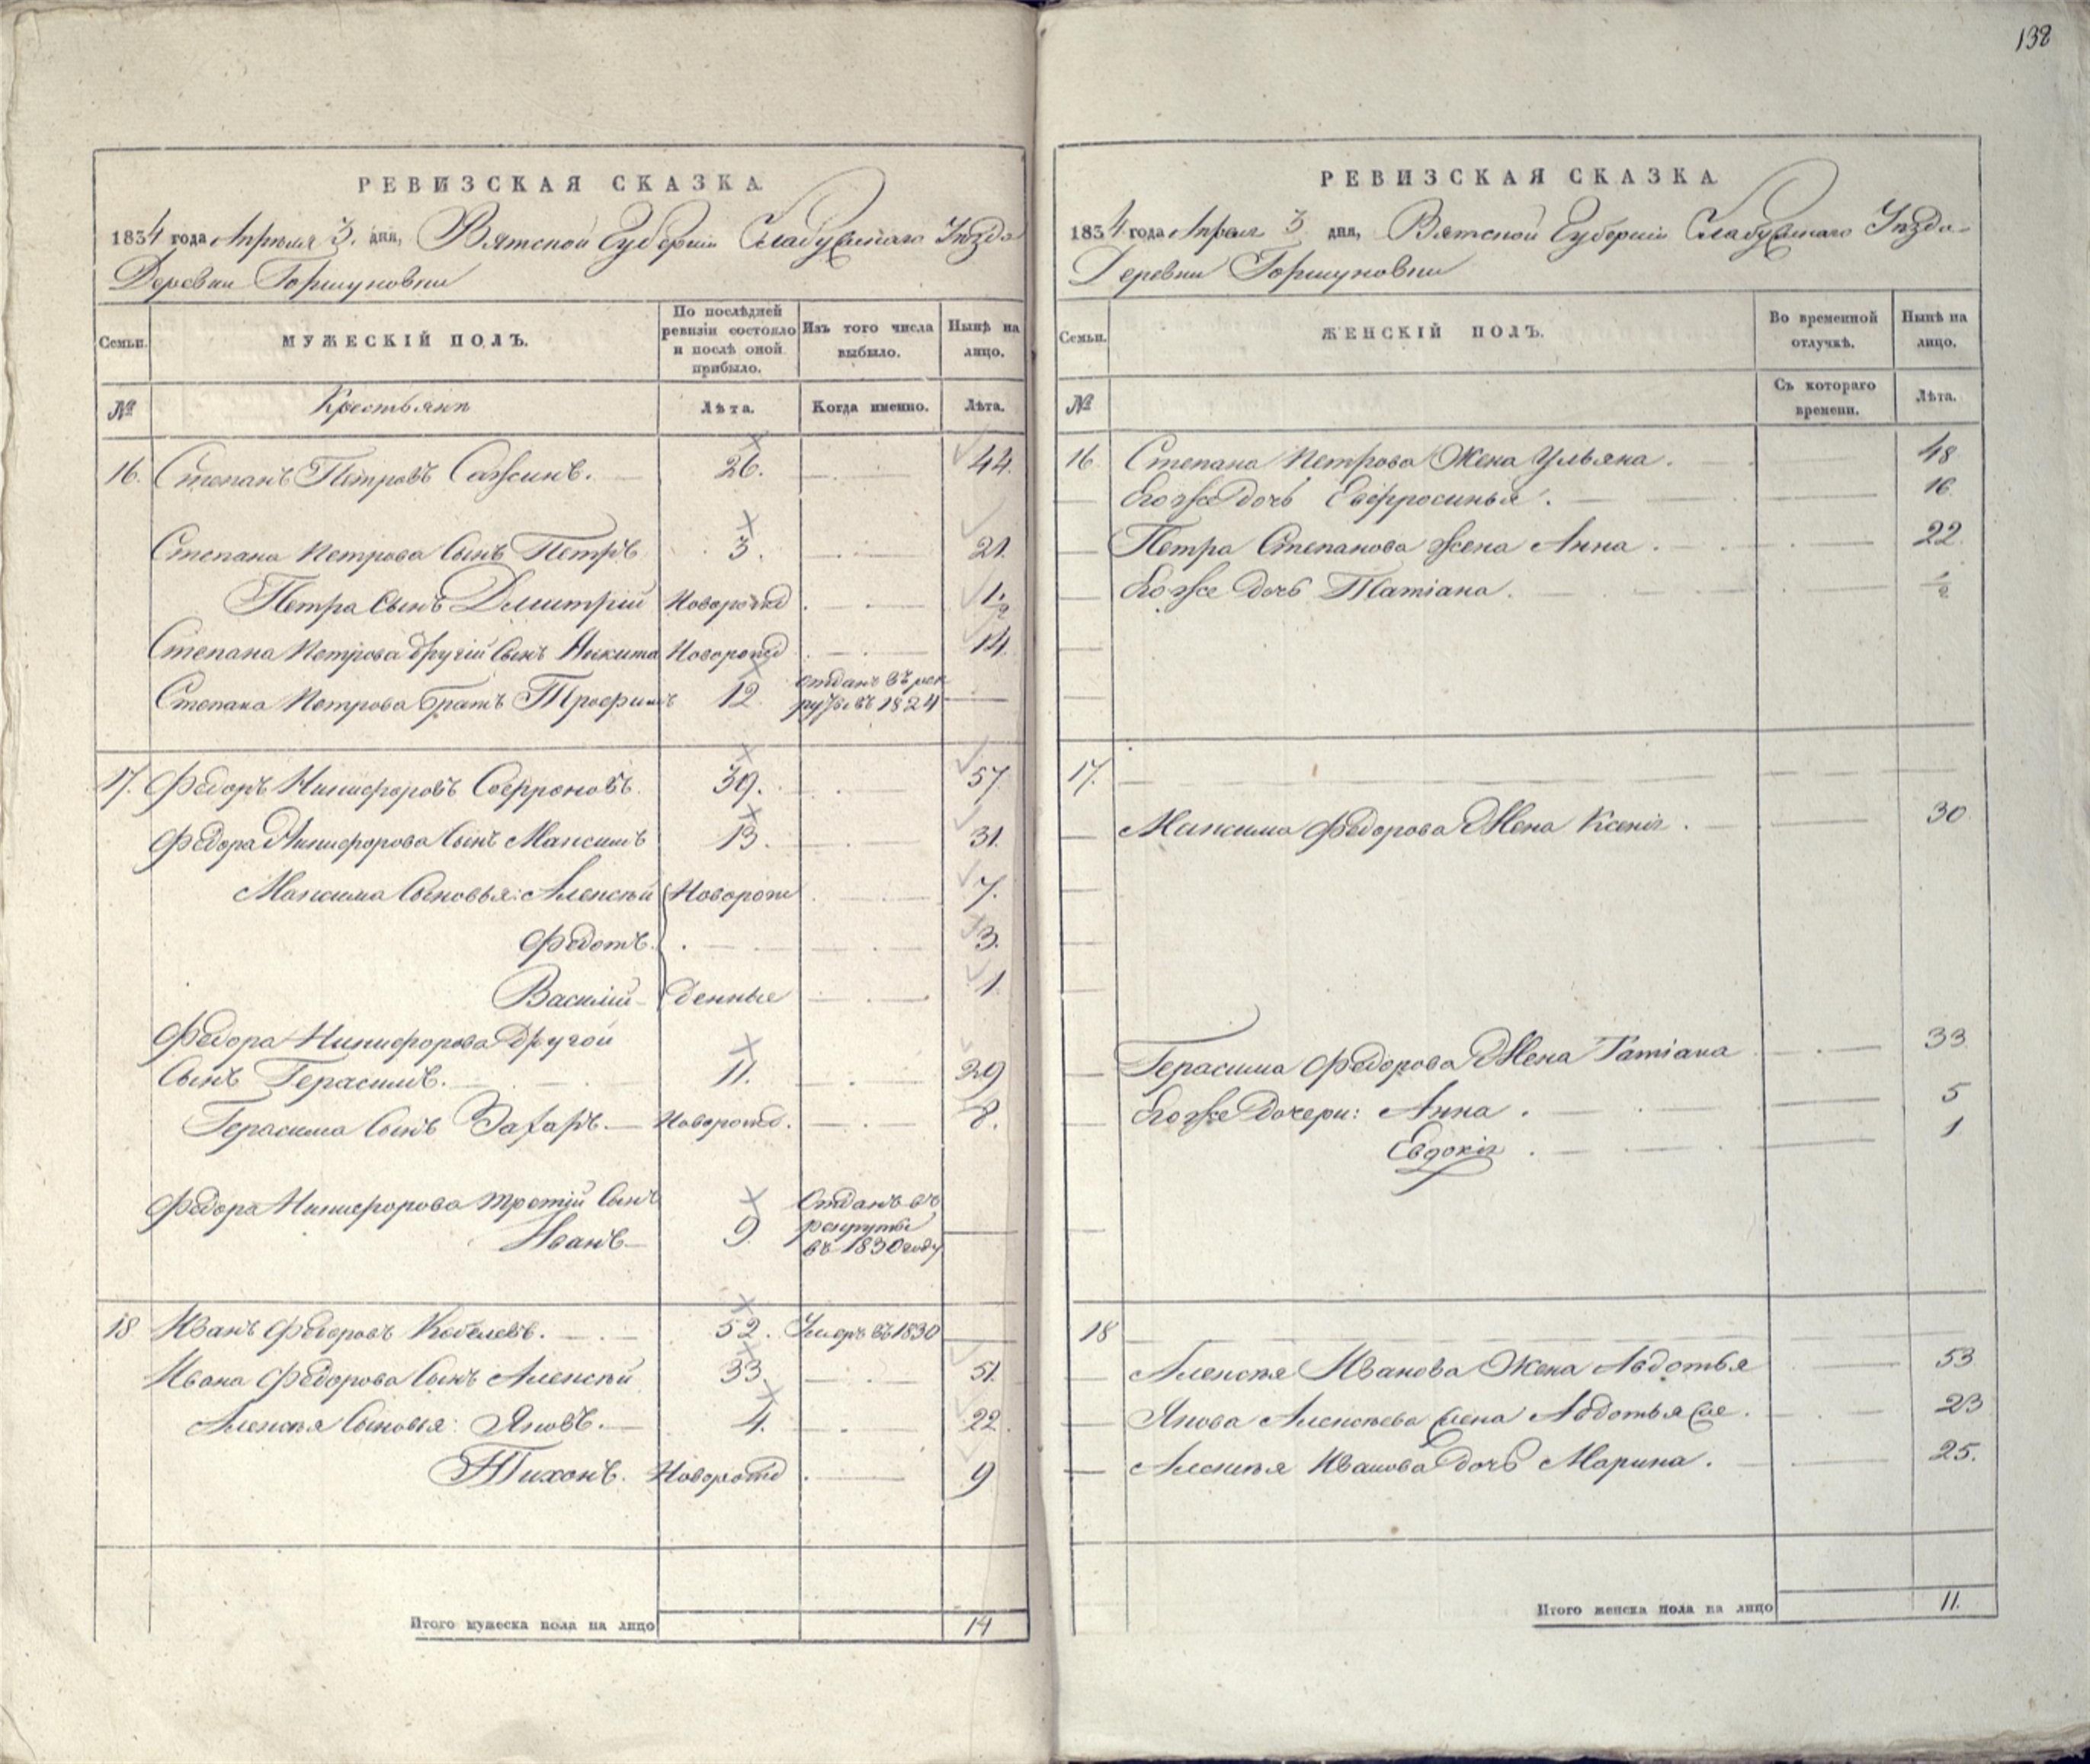 138
РЕВИЗСКАЯ СКАЗКА
1834 года Апреля 3. дня, Вятской Губернии Елабужскаго Уѣзда
Деревни Горшуновки
Семьи.
МУЖЕСКІЙ ПОЛЪ.
По послѣдней ревизіи состояло и послѣ оной прибыло.
Изъ того числа выбыло.
Нынѣ на лицо.
№
Крестьянъ
Лѣта.
Когда именно.
Лѣта.
16. Степанъ Петровъ Сажинъ. 26. 44.
Степана Петрова Сынъ Петръ 3. 21.
Петра Сынъ Димитрій Новорожд 1/2
Степана Петрова другій Сынъ Никита Новорожд 14.
Степана Петрова братъ Трофимъ 12. отданъ въ рек
руты въ 1824
17. Федоръ Никифоровъ Софроновъ. 39. 57.
Федора Никифорова Сынъ Максимъ 13. 31.
Максима Сыновья: Алексѣй Новорож 7.
Федотъ. 3.
Василій денные 1
Федора Никифорова Другой
Сынъ Герасимъ. 11. 29
Герасима Сынъ Захаръ. Новорожд. 8.
Федора Никифорова третій Сынъ
Иванъ 9. Отданъ въ
рекруты
въ 1830 году
18 Иванъ Федоровъ Кобелевъ. 52. Умеръ въ 1830
Ивана Федорова Сынъ Алексѣй 33. 51.
Алексѣя Сыновья: Яковъ. 4. 22.
Тихонъ. Новорожд 9
Итого мужеска пола на лицо 14
РЕВИЗСКАЯ СКАЗКА
1834 года Апреля 3 дня, Вятской Губерніи Елабужскаго Уѣзда
Деревни Горшуновки
Семьи.
ЖЕНСКІЙ ПОЛЪ.
Во временной отлучкѣ.
Нынѣ на лицо.
№
Съ котораго времени.
Лѣта.
16. Степана Петрова Жена Ульяна. 48
Его же дочь Евфросинья. 16
Петра Степанова жена Анна. 22.
Его же дочь Татіана. 1/2
17.
Максима Федорова Жена Ксенія. 30
Герасима Федорова Жена Татіана 33
Его же Дочери: Анна. 5
Евдокія. 1
18
Алексѣя Иванова Жена Авдотья 53
Якова Алексѣева Жена Авдотья же. 23
Алексѣя Иванова дочь Марина. 25.
Итого женска пола на лицо 11.